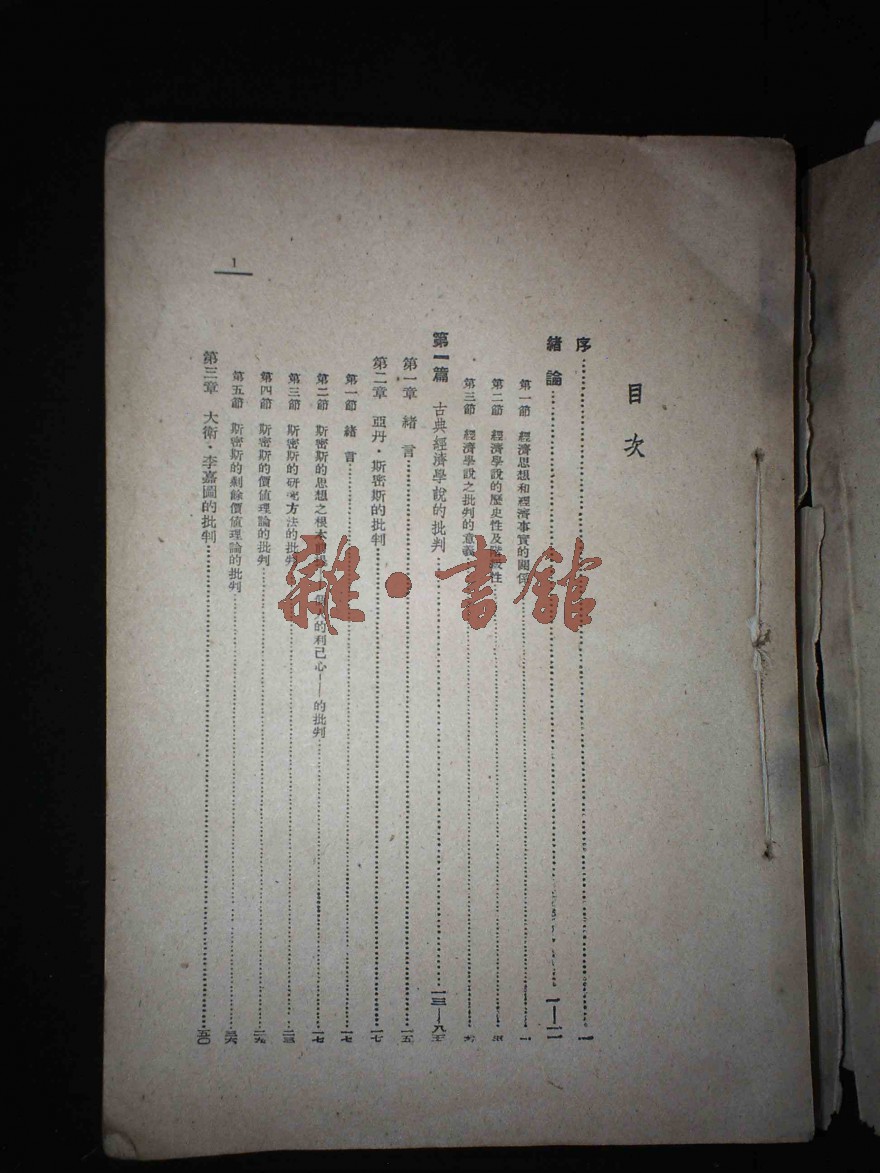 目次
序 一
緒論 一—一二
第一節 經濟思想和經濟事實的關係 一
第二節 經濟學說的歷史性及階級性
第三節 經濟學說之批判的意義 六
第一篇 古典經濟學說的批判 一三—八五
第一章 緒言 一五
第二章 亞丹·斯密斯的批判 一七
第一節 緒言 一七
第二節 斯密斯的思想之根本 的利己心——的批判 一七
第三節 斯密斯的研究方法的批判 二三
第四節 斯密斯的價值理論的批判 二九
第五節 斯密斯的剩餘價值理論的批判 三六
第三章 大衛·李嘉圖的批判 五〇
1
雜·書館